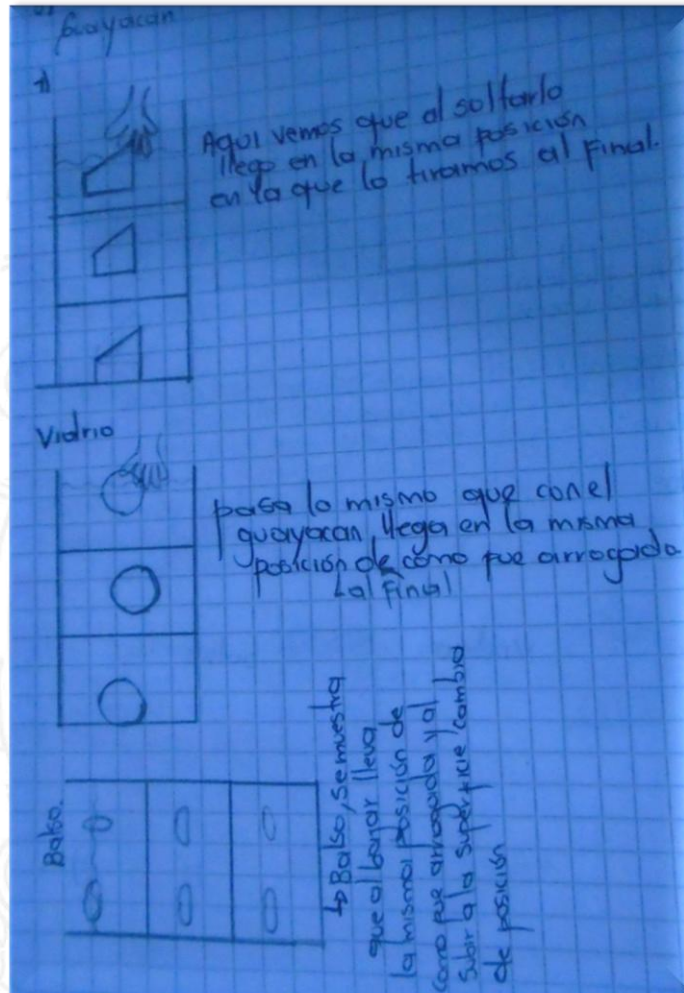 Guayacan
1)
Aqui vemos que al soltarlo
llego en la misma posición
en la que lo tiramos al Final.
Vidrio
pasa lo mismo que con el
guayacan, llega en la misma
posición de como fue arrogado
al Final
Balso.
↳ Balso, se muestra
que al bajar lleva
la misma posición de
como fue arrogada y al
subir a la superficie cambia
de posición